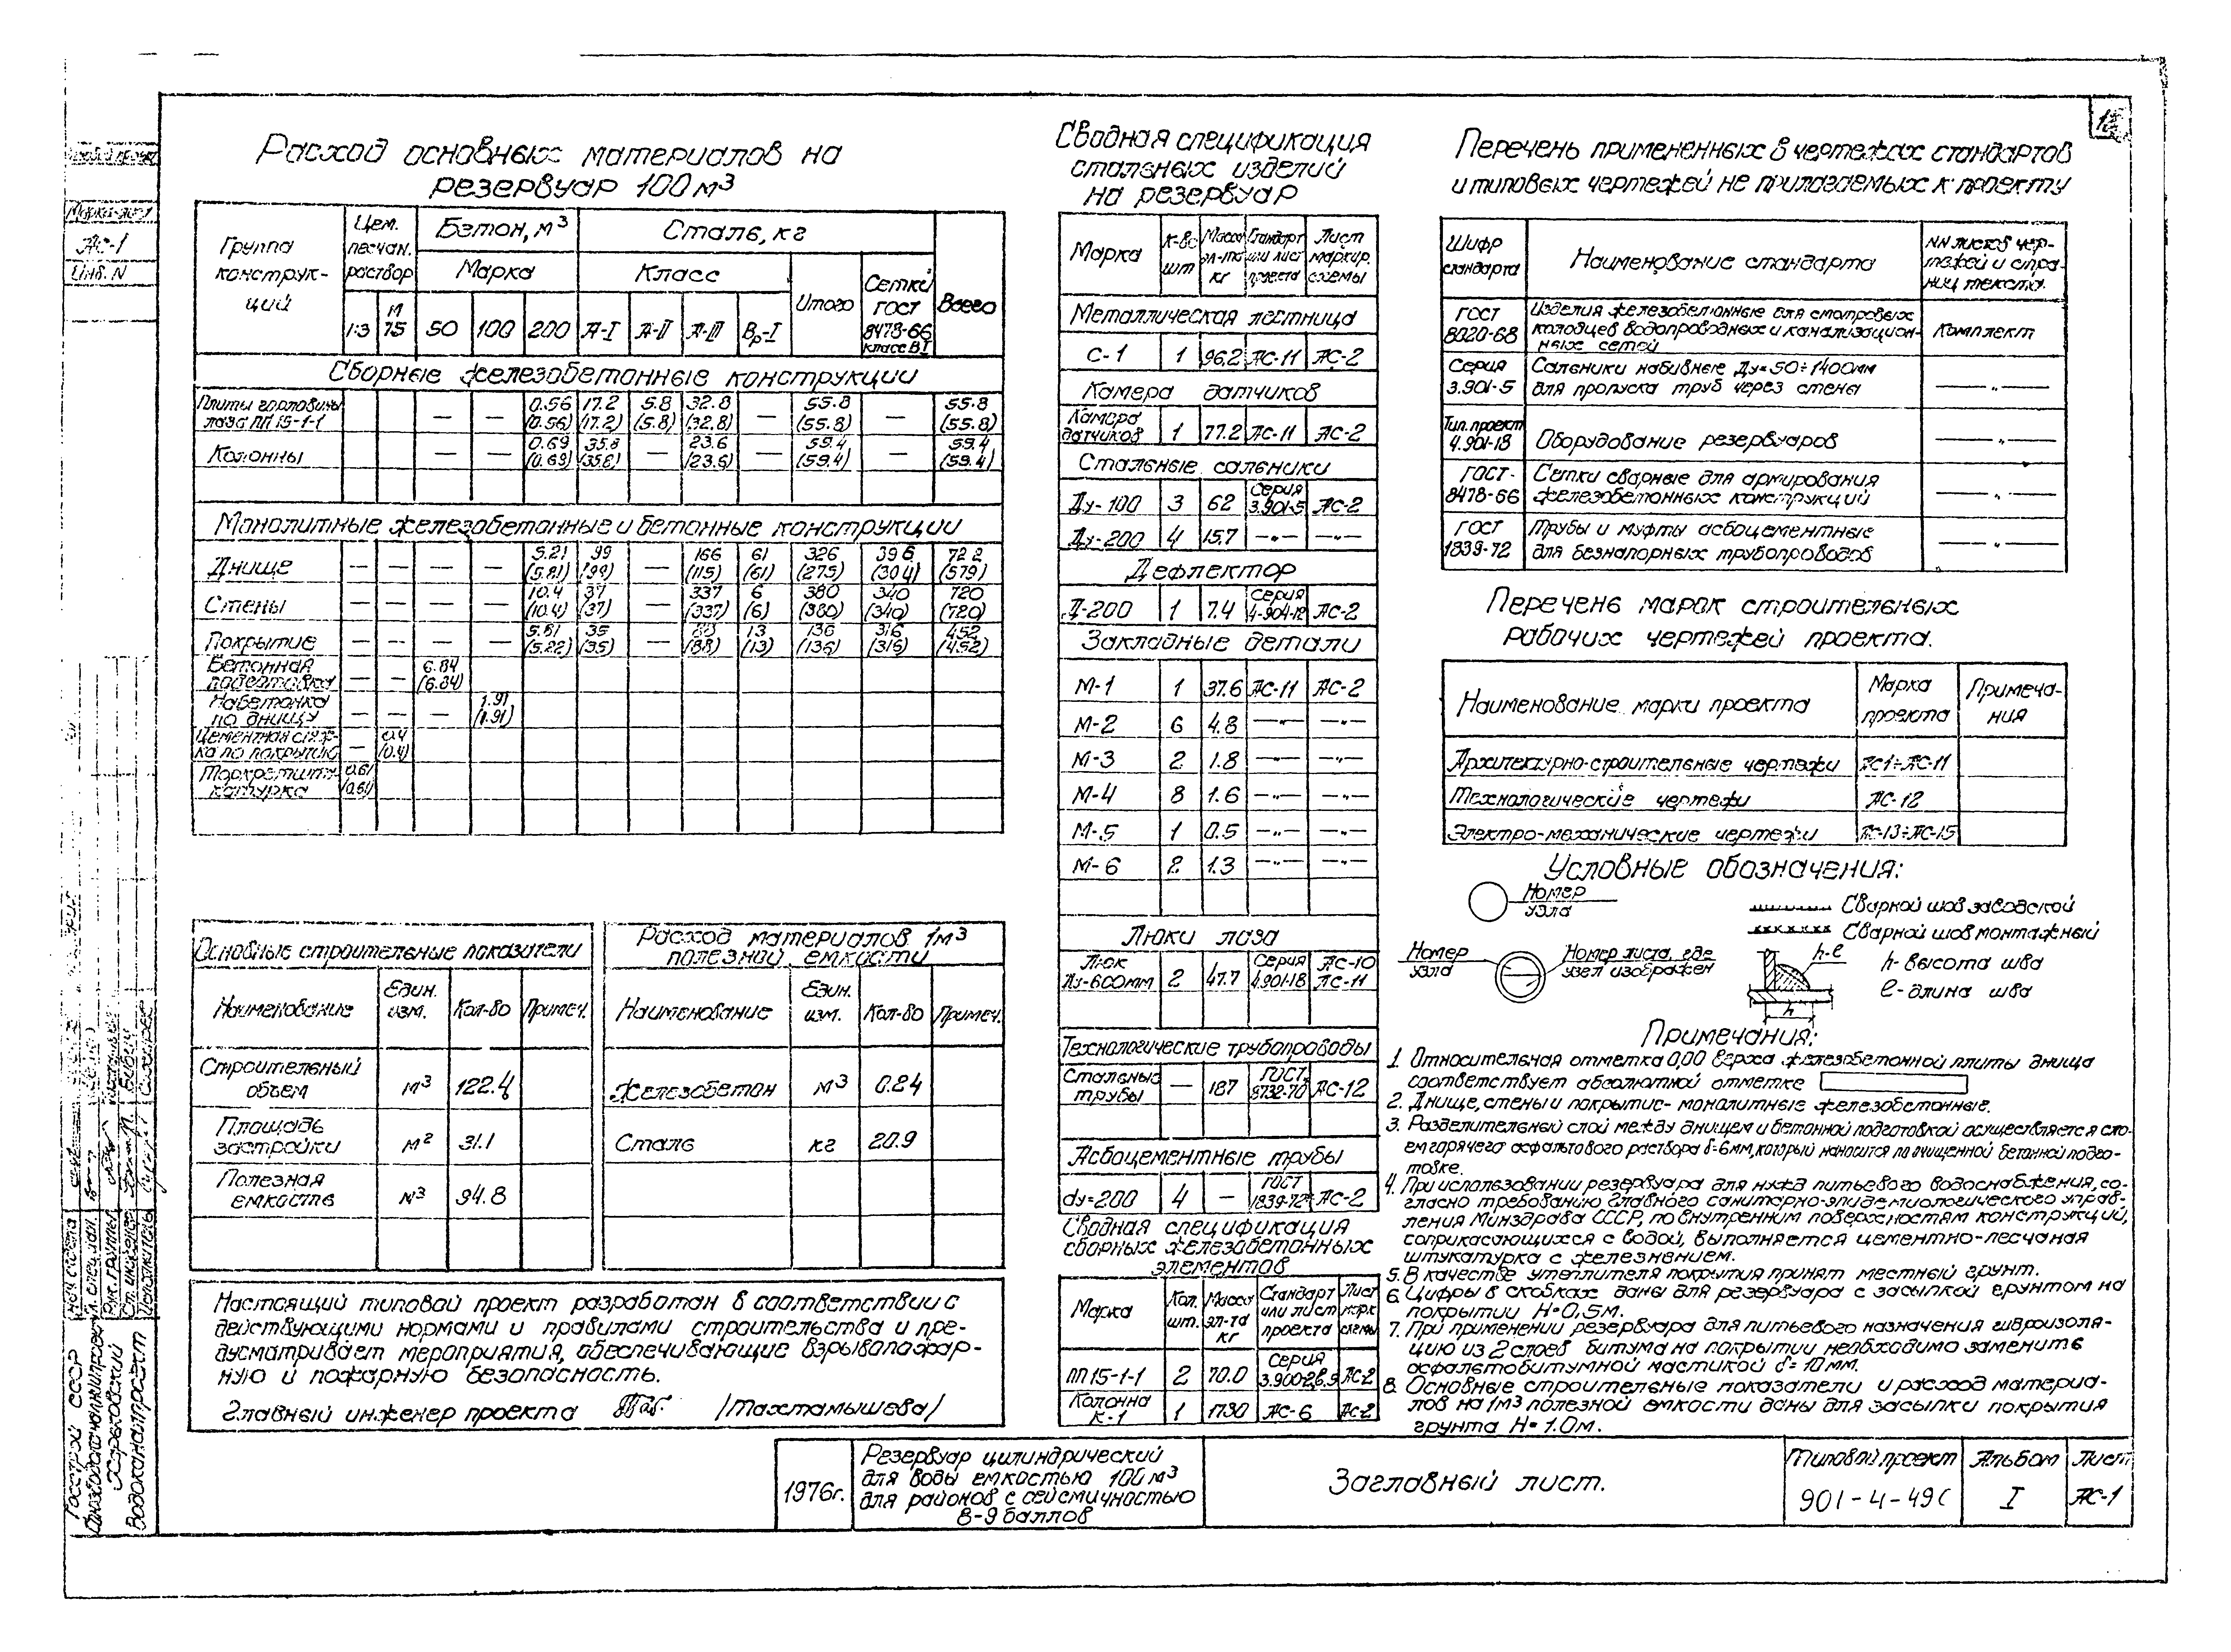 Расход основных материалов на
резервуар 100 м³
Группа конструк-ций | Цем. песчан. раствор | Бетон, м³ | Сталь, кг | Всего
Марка | Класс | Итого | Сетки ГОСТ 8478-66 класс В I
1:3 | М 75 | 50 | 100 | 200 | А-I | А-II | А-III | Вр-I
Сборные железобетонные конструкции
Плиты горловины лаза ПП 15-1-1 | — | — | 0.56 (0.56) | 17.2 (17.2) | 5.8 (5.8) | 32.8 (32.8) | — | 55.8 (55.8) | — | 55.8 (55.8)
Колонны | — | — | 0.69 (0.69) | 35.8 (35.8) | — | 23.6 (23.6) | — | 59.4 (59.4) | — | 59.4 (59.4)
Монолитные железобетонные и бетонные конструкции
Днище | — | — | — | — | 5.21 (5.81) | 99 (99) | — | 166 (115) | 61 (61) | 326 (275) | 396 (304) | 722 (579)
Стены | — | — | — | — | 10.4 (10.4) | 37 (37) | — | 337 (337) | 6 (6) | 380 (380) | 340 (340) | 720 (720)
Покрытие | — | — | — | — | (5.22) | 35 (35) | — | (88) | 13 (13) | 136 (136) | 316 (316) | 452 (452)
Бетонная подготовка | — | — | 6.84 (6.84)
Набетонка по днищу | — | — | — | 1.91 (1.91)
Цементная стяж-ка по покрытию | — | 0.4 (0.4)
Торкретшту-катурка | 0.61 (0.61)
Основные строительные показатели
Наименование | Един. изм. | Кол-во | Примеч.
Строительный объем | м³ | 122.4
Площадь застройки | м² | 31.1
Полезная емкость | м³ | 94.8
Расход материалов 1м³
полезной емкости
Наименование | Един. изм. | Кол-во | Примеч.
Железобетон | м³ | 0.24
Сталь | кг | 20.9
Настоящий типовой проект разработан в соответствии с
действующими нормами и правилами строительства и пре-
дусматривает мероприятия, обеспечивающие взрывопожар-
ную и пожарную безопасность.
Главный инженер проекта /Тахтамышева/
Сводная спецификация
стальных изделий
на резервуар
Марка | К-во шт | Масса эл-та кг | Стандарт или лист проекта | Лист маркир. схемы
Металлическая лестница
С-1 | 1 | 96.2 | АС-11 | АС-2
Камера датчиков
Камера датчиков | 1 | 77.2 | АС-11 | АС-2
Стальные сальники
Ду-100 | 3 | 62 | Серия 3.901-5 | АС-2
Ду-200 | 4 | 15.7 | —"— | —"—
Дефлектор
Д-200 | 1 | 7.4 | Серия 4-904-12 | АС-2
Закладные детали
М-1 | 1 | 37.6 | АС-11 | АС-2
М-2 | 6 | 4.8 | —"— | —"—
М-3 | 2 | 1.8 | —"— | —"—
М-4 | 8 | 1.6 | —"— | —"—
М-5 | 1 | 0.5 | —"— | —"—
М-6 | 2 | 1.3 | —"— | —"—
Люки лаза
Люк Ду-600мм | 2 | 47.7 | Серия 4.901-18 | АС-10 АС-11
Технологические трубопроводы
Стальные трубы | — | 187 | ГОСТ 8732-70 | АС-12
Асбоцементные трубы
dу=200 | 4 | — | ГОСТ 1839-72 | АС-2
Сводная спецификация
сборных железобетонных
элементов
Марка | Кол. шт. | Масса эл-та кг | Стандарт или лист проекта | Лист марк схемы
ПП 15-1-1 | 2 | 70.0 | Серия | АС-2
Колонна К-1 | 1 | 1730 | АС-6 | АС-2
Перечень примененных в чертежах стандартов
и типовых чертежей не прилагаемых к проекту
Шифр стандарта | Наименование стандарта | NN листов чер-тежей и стра-ниц текста.
ГОСТ 8020-68 | Изделия железобетонные для смотровых колодцев водопроводных и канализацион-ных сетей | Комплект
Серия 3.901-5 | Сальники набивные Ду=50÷1400мм для пропуска труб через стены | —"—
Тип. проект 4.901-18 | Оборудование резервуаров | —"—
ГОСТ- 8478-66 | Сетки сварные для армирования железобетонных конструкций | —"—
ГОСТ 1839-72 | Трубы и муфты асбоцементные для безнапорных трубопроводов | —"—
Перечень марок строительных
рабочих чертежей проекта.
Наименование марки проекта | Марка проекта | Примеча-ния
Архитектурно-строительные чертежи | АС1÷АС-11
Технологические чертежи | АС-12
Электро-механические чертежи | АС-13÷АС-15
Условные обозначения:
Номер
узла
Номер
узла
Номер листа, где
узел изображен
Сварной шов заводской
Сварной шов монтажный
h-ℓ
h
h-высота шва
ℓ-длина шва
Примечания:
1. Относительная отметка 0,00 верха железобетонной плиты днища
соответствует абсолютной отметке
2. Днище, стены и покрытие- монолитные железобетонные.
3. Разделительный слой между днищем и бетонной подготовкой осуществляется сло-
ем горячего асфальтового раствора δ=6мм, который наносится по очищенной бетонной подго-
товке.
4. При использовании резервуара для нужд питьевого водоснабжения, со-
гласно требованию Главного санитарно-эпидемиологического управ-
ления Минздрава СССР, по внутренним поверхностям конструкций,
соприкасающихся с водой, выполняется цементно-песчаная
штукатурка с железнением.
5. В качестве утеплителя покрытия принят местный грунт.
6. Цифры в скобках даны для резервуара с засыпкой грунтом на
покрытии Н=0,5м.
7. При применении резервуара для питьевого назначения гидроизоля-
цию из 2 слоев битума на покрытии необходимо заменить
асфальтобитумной мастикой δ=10мм.
8. Основные строительные показатели и расход материа-
лов на 1м³ полезной емкости даны для засыпки покрытия
грунта Н=1.0м.
1976г.
Резервуар цилиндрический
для воды емкостью 100 м³
для районов с сейсмичностью
8-9 баллов
Заглавный лист.
Типовой проект
901-4-49с
Альбом
I
Лист
АС-1
Марка-лист
АС-1
Инв. N
Госстрой СССР
Союзводоканалниипроект
Харьковский
Водоканалпроект
Нач. отдела
Гл. спец.
Рук. группы
Ст. инженер
Исполнитель